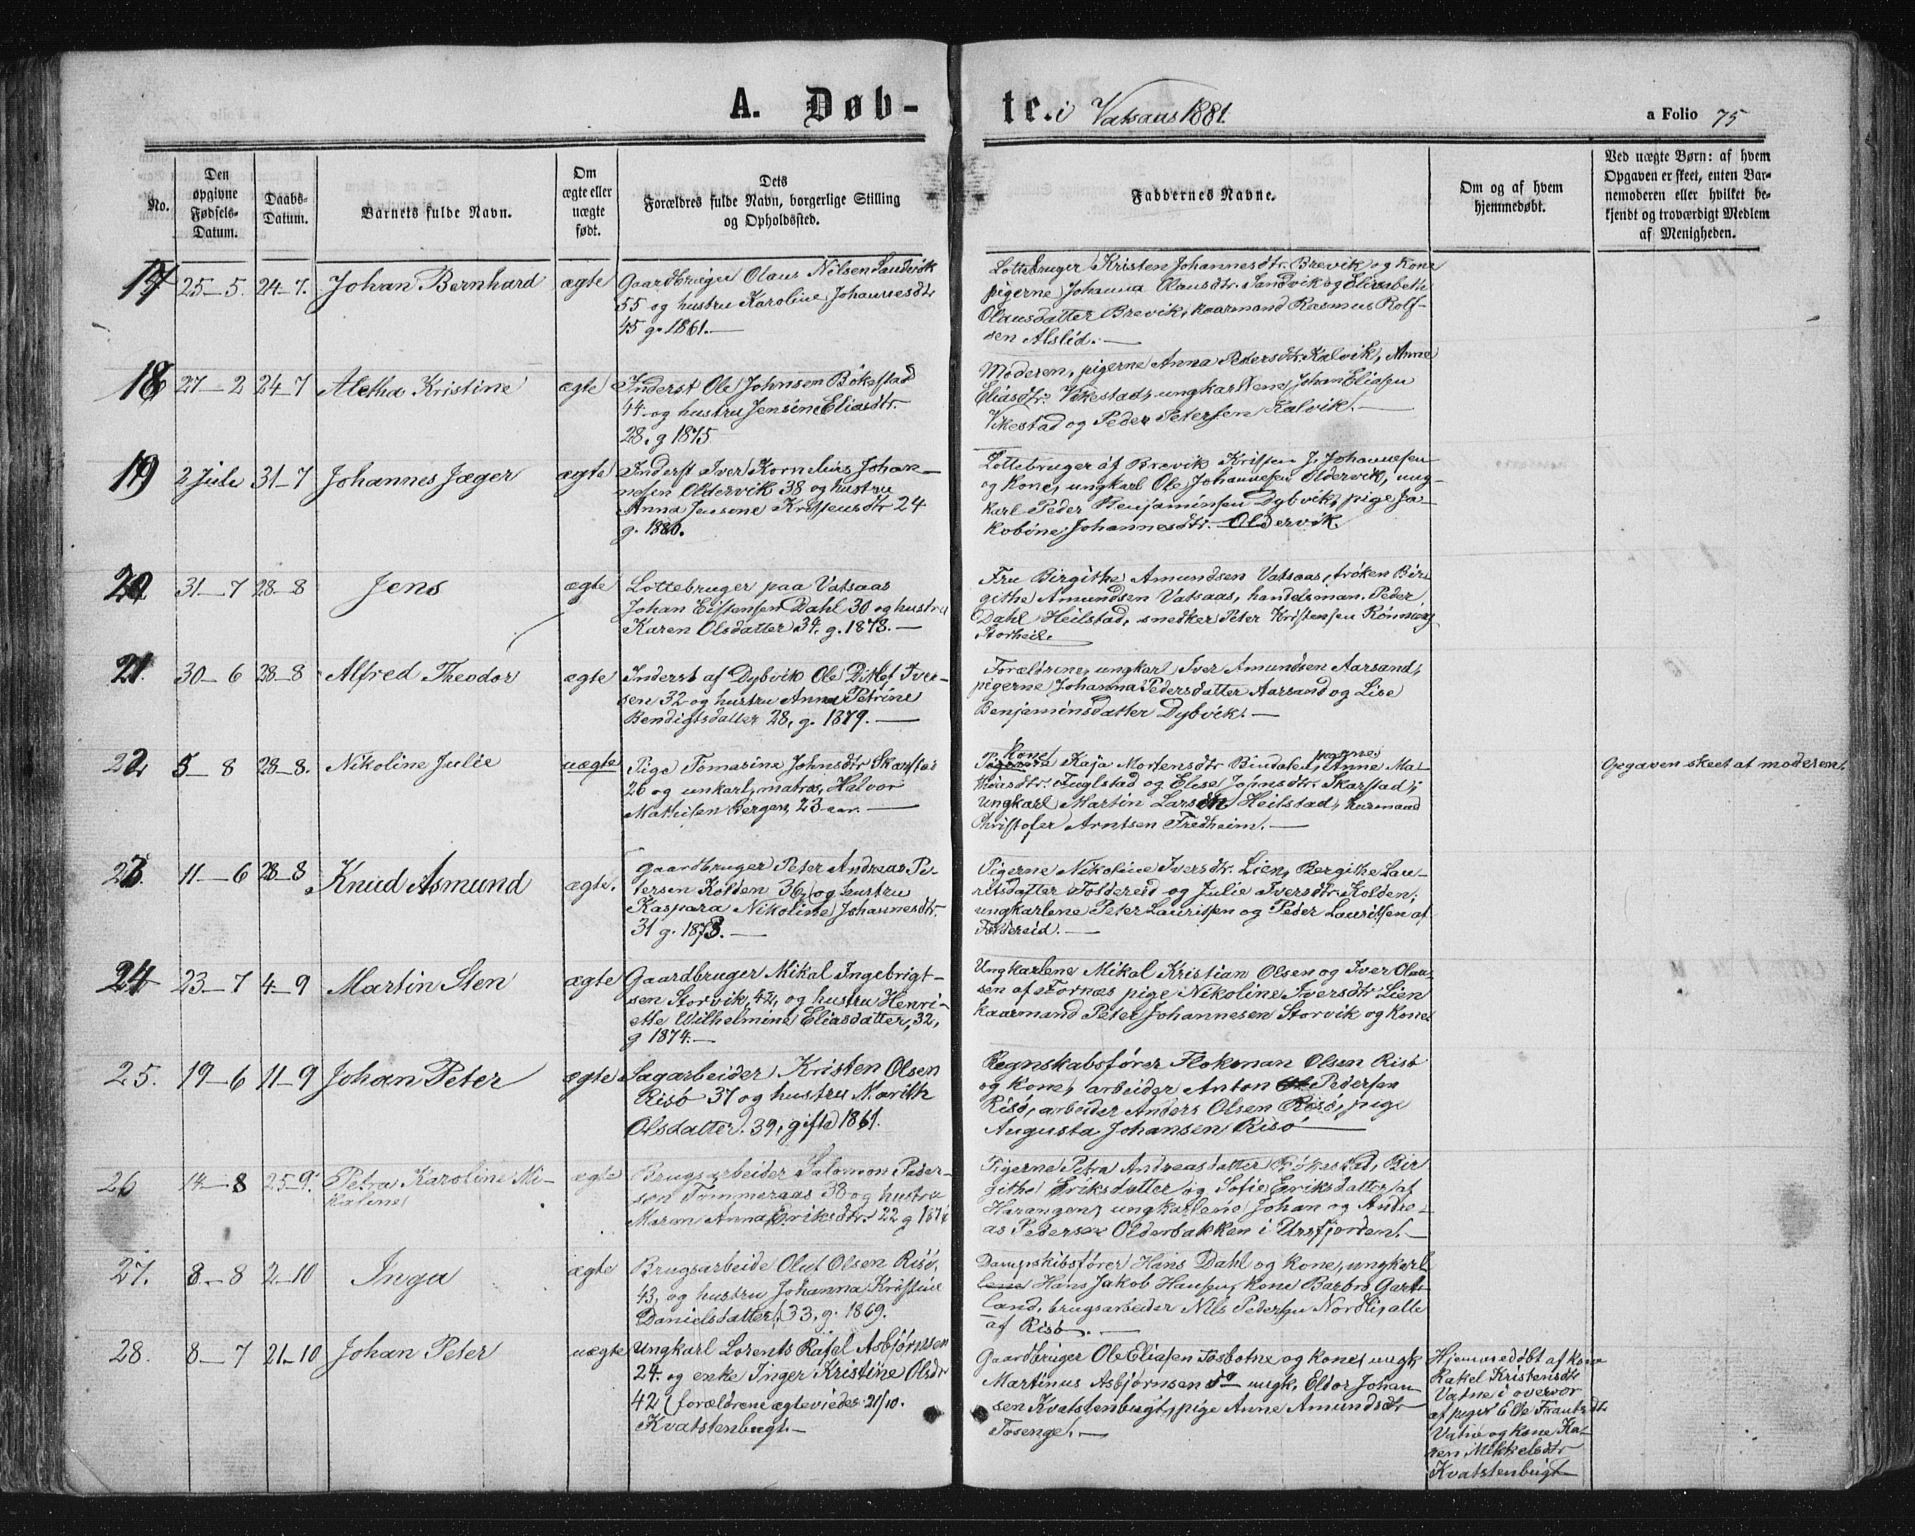 A. Døb-
te. i Vatsaas 1881.
a Folio 75
No.
Den opgivne Fødsels-Datum.
Daabs-Datum.
Barnets fulde Navn.
Om ægte eller uægte født.
Dets Forældres fulde Navn, borgerlige Stilling og Opholdssted.
Faddernes Navne.
Om og af hvem hjemmedøbt.
Ved uægte Børn: af hvem Opgaven er skeet, enten Bar-nemoderen eller hvilket be-kjendt og troværdigt Medlem af Menigheden.
17 25–5. 24–7. Johan Bernhard ægte
Gaardbruger Olaus Nilsen Sandvik
55 og hustru Karoline Johannesdtr
45 g. 1861.—
Lottebruger Kristen Johannesdtr. Brevik og Kone
pigerne Johanna Olausdtr. Sandvik og Elisabeth
Olausdatter Brevik, kaarmand Rasmus Rolf-
sen Alslid.—
18 27–2 24–7 Aletha Kristine ægte
Inderst Ole Johnsen Bökestad
44 og hustru Jensine Eliasdtr.
28, g 1875
Moderen, pigerne Anna Pedersdtr. Kalvik, Anne
Eliasdtr. Vikestad, ungkarlene Johan Eliasen
Vikestad og Peder Petersen Kalvik.—
19 2 Juli 31–7 Johannes Jæger ægte
Inderst Iver Kornelius Johan-
nesen Oldervik 38 og hustru
Anna Jensine Kristensdtr 24
g. 1880.
Lottebruger af Brevik Kristen J. Johannesen
og Kone, ungkarl Ole Johannesen Oldervik, ung-
karl Peder Benjaminsen Dybvik, pige Ja-
kobine Johannesdtr. Oldervik.
20 31–7 28–8 Jens ægte
Lottebruger paa Vatsaas
Johan Eistensen Dahl 30 og hustru
Karen Olsdatter 34, g. 1878.—
Fru Birgithe Amundsen Vatsaas, fröken Bir-
githe Amundsen Vatsaas, handelsman. Peder
Dahl Heilstad, snedker Peter Kristensen Rönning
Storheil.
21. 30–6 28–8 Alfred Theodor ægte
Inderst af Dybvik Ole Ditlef Iver-
sen 32 og hustru Anna Petrine
Bendigtsdatter 28, g. 1879.—
Forældrene, ungkarl Iver Amundsen Aarsand,
pigerne Johanna Pedersdatter Aarsand og Lise
Benjaminsdatter Dybvik.—
22 5–8 28–8. Nikoline Julie uægte
Pige Tomasine Johnsdtr Skarstad
26 og unkarl, matros, Halvor
Mathisen Bergen, 23 aar.—
Kone
Kaja Mortensdtr Bindalen, Anne Ma-
thiasdtr. Fuglstad og Elise Johnsdtr. Skarstad,
ungkarl Martin Larsen Heilstad, kurmand
Christofer Arntsen Fredheim.—
Opgaven skeet af moderen.
23. 11–6 28–8 Knud Asmund ægte.
Gaardbruger Peter Andreas Pe-
tersen Kolden 36, og hustru
Kaspara Nikoline Johannesdtr.
31 g. 1873.—
Pigerne Nikoline Iversdtr. Lien, Bergithe Lau-
ritsdatter Foldereid og Julie Iversdtr. Kolden,
ungkarlene Peter Lauritsen og Peder Lauritsen af
Foldereid.—
24 23–7 4–9 Martin Sten ægte
Gaardbruger Mikal Ingebrigt-
sen Storvik, 42, og hustru Henri-
ette Wilhelmine Eliasdatter, 32,
g 1874.—
Ungkarlene Mikal Kristian Olsen og Iver Olau-
sen af Tornæs pige Nikoline Iversdtr Lien
kaarmand Peter Johannesen Storvik og kone
25. 19–6 11–9 Johan Peter ægte
Sagarbeider Kristen Olsen
Risö 37 og hustru Marith
Olsdatter. 39, gifte 1861.
Regnskabsfører Flokman Olsen Risö
og Kone, arbeider Anton Pedersen
Risö, arbeider Anders Olsen Risö, pige
Augusta Johansen Risö
26 14–8 25–9. Petra Karoline Mi-
kaline ægte
Brugsarbeider Salomon Peder-
sen Tømmeraas 38 og hustru
Maren Anna Eriksdtr. 22 g 187
Pigerne Petra Andreasdatter Bökestad, Bir-
githe Eriksdatter og Sofie Eriksdatter af
Harangen, ungkarlene Johan og Andre-
as Pedersen Olderbakken i Ursfjorden.—
27. 8–8 2–10 Inga ægte
Brugsarbeide Oluf Olsen Risö,
43, og hustru Johanna Kristine
Danielsdatter, 33, g. 1869.
Dampskibsfører Hans Dahl og kone, ungkarl
Hans Jakob Hansen, kone Barbro Gart-
land, brugsarbeider Nils Pedersen Nordli, alle
af Risö.—
28. 8–7 21–10 Johan Peter uægte
Ungkarl Lorents Rafel Asbjørnsen
24 og enke Inger Kristine Olsdr
42 (forældrene ægteviede 21/10.
Kvatstenbugt.—
Gaardbruger Ole Eliasen Tosbotne og kone, ungk
Martinus Asbjørnsen do ungk. Eldor Johan
sen Kvatstenbugt, pige Anne Amundsdtr
Tosenget.—
Hjemmedøbt af kone
Rakel Kristensdtr
Vatne i overvær
af piger Elle Frantsdtr
Vatne og kone Ka-
ren Mikkelsdtr
Kvatstenbugt